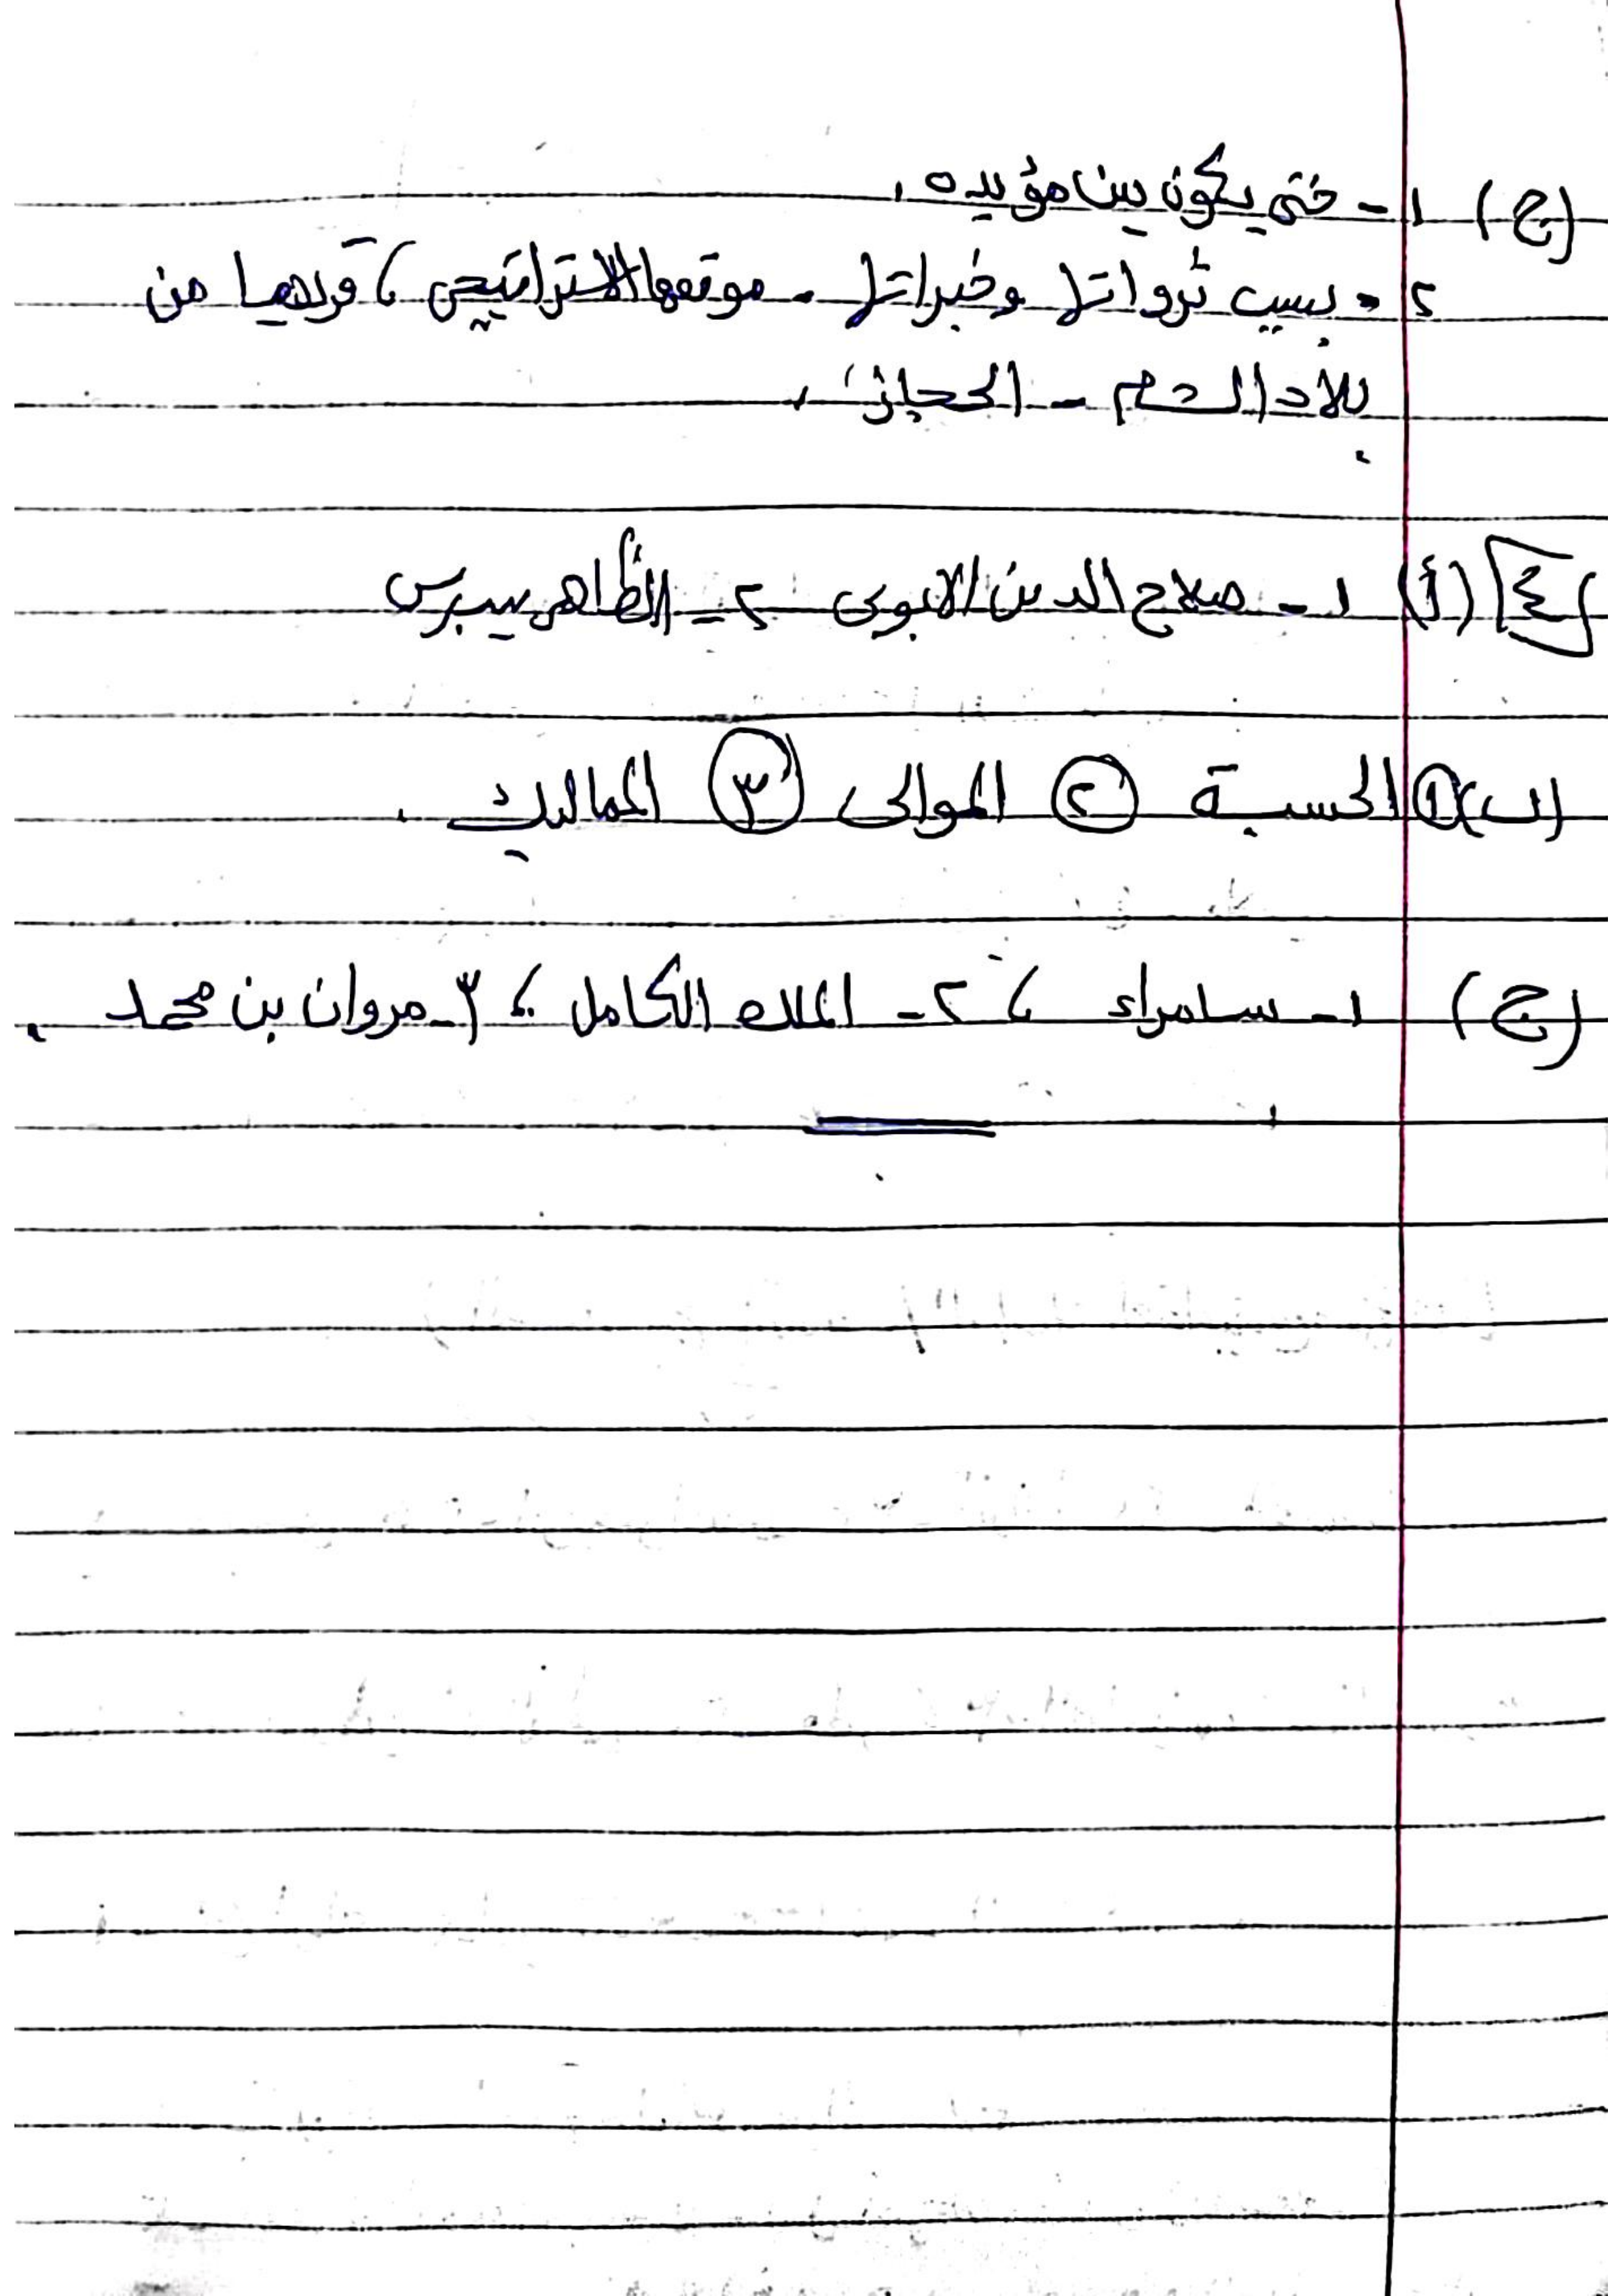 (ج) ١- حتى يكون بين مؤيديه.
٢- بسبب ثرواتها وخيراتها - موقعها الاستراتيجى، قربها من
بلاد الشام - الحجاز.
٤ (أ) ١- صلاح الدين الايوبى ٢- الظاهر بيبرس
(ب) ١ الحسبة ٢ الموالى ٣ المماليك.
(ج) ١- سامراء، ٢- الملك الكامل، ٣- مروان بن محمد.